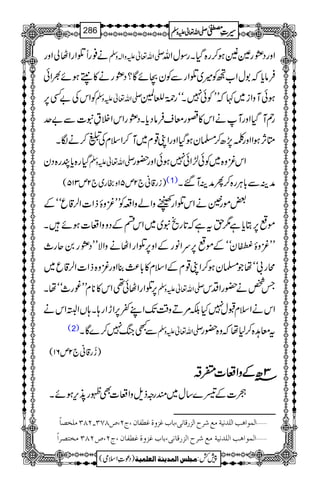 سیرتِ مصطفیٰ صلی اللہ تعالیٰ علیہ وسلم 286
اور دعثور غین غین ہو کر رہ گیا۔ رسول اللہ صلی اللہ تعالیٰ علیہ والہ وسلم نے فوراً تلوار اٹھالی اور
فرمایا کہ بول اب تجھ کو میری تلوار سے کون بچائے گا؟ دعثور نے کانپتے ہوئے بھرائی
ہوئی آواز میں کہا کہ ’’کوئی نہیں۔‘‘ رحمۃ للعالمین صلی اللہ تعالیٰ علیہ وسلم کو اس کی بے کسی پر
رحم آ گیا اور آپ نے اس کا قصور معاف فرما دیا۔ دعثور اس اخلاق نبوت سے بے حد
متاثر ہوا اور کلمہ پڑھ کر مسلمان ہو گیا اور اپنی قوم میں آ کر اسلام کی تبلیغ کرنے لگا۔
اس غزوہ میں کوئی لڑائی نہیں ہوئی اور حضور صلی اللہ تعالیٰ علیہ وسلم گیارہ یا پندرہ دن
مدینہ سے باہر رہ کر پھر مدینہ آ گئے۔ (1) (زرقانی ج۲ ص۱۵ و بخاری ج۲ ص۵۱۳)
بعض مورخین نے اس تلوار کھینچنے والے واقعہ کو ’’غزوۂ ذات الرقاع‘‘ کے
موقع پر بتایا ہے مگر حق یہ ہے کہ تاریخ نبوی میں اس قسم کے دو واقعات ہوئے ہیں۔
’’غزوۂ غطفان‘‘ کے موقع پر سر انور کے اوپر تلوار اٹھانے والا ’’دعثور بن حارث
محاربی‘‘ تھا جو مسلمان ہو کر اپنی قوم کے اسلام کا باعث بنا اور غزوۂ ذات الرقاع میں
جس شخص نے حضور اقدس صلی اللہ تعالیٰ علیہ وسلم پر تلوار اٹھائی تھی اس کا نام ’’غورث‘‘ تھا۔
اس نے اسلام قبول نہیں کیا بلکہ مرتے وقت تک اپنے کفر پر اڑا رہا۔ ہاں البتہ اس نے
یہ معاہدہ کر لیا تھا کہ وہ حضور صلی اللہ تعالیٰ علیہ وسلم سے کبھی جنگ نہیں کرے گا۔ (2)
(زُرقانی ج۲ ص۱۶)
۳ھ کے واقعات متفرقہ
ہجرت کے تیسرے سال میں مندرجہ ذیل واقعات بھی ظہور پذیر ہوئے۔
1......المواهب اللدنية مع شرح الزرقانی،باب غزوة غطفان، ج۲،ص۳۷۸۔۳۸۲ ملخصاً
2......المواهب اللدنية مع شرح الزرقانی،باب غزوة غطفان، ج۲،ص۳۸۲ مختصراً
پیش کش: مجلس المدینة العلمية (دعوتِ اسلامی)